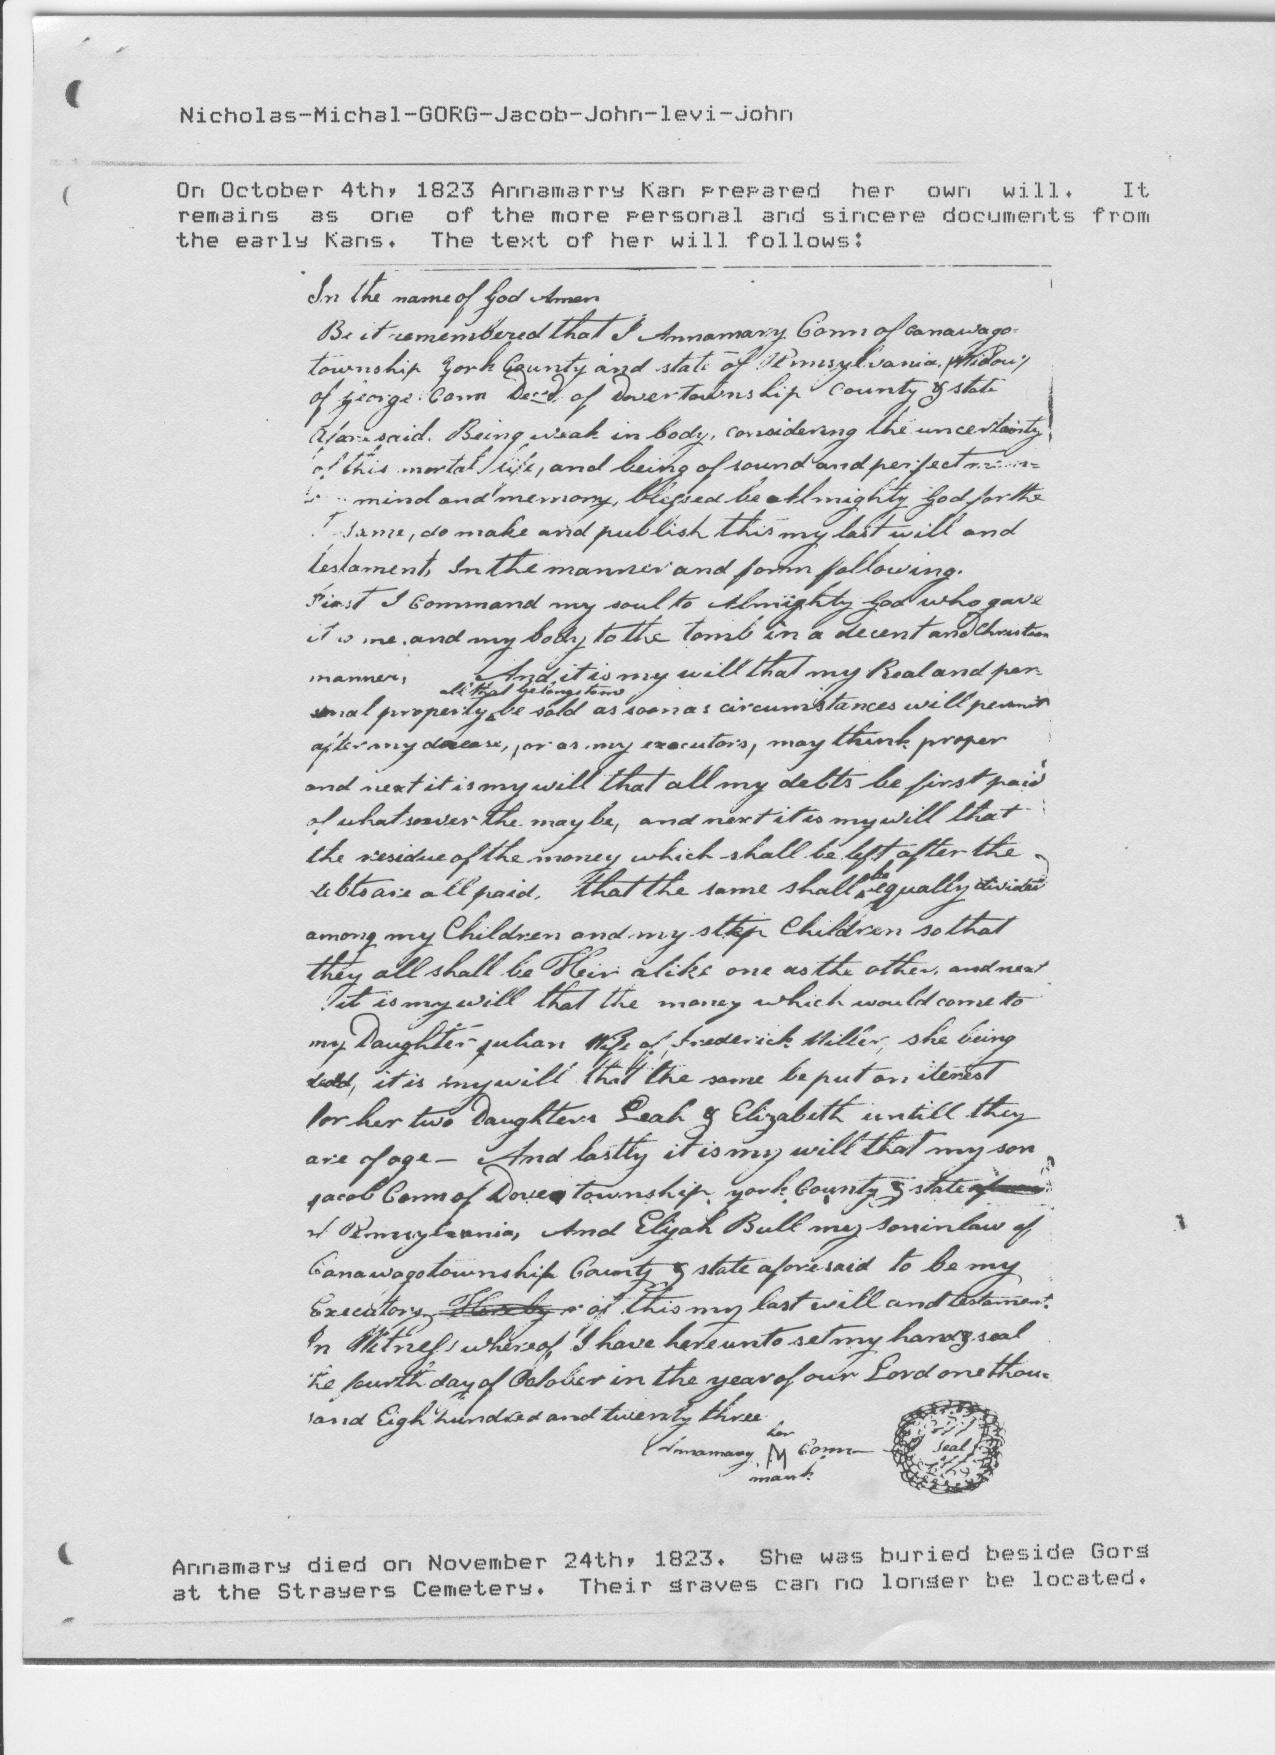 Nicholas-Michal-GORG-Jacob-John-levi-john
On October 4th, 1823 Annamarry Kan prepared her own will. It
remains as one of the more personal and sincere documents from
the early Kans. The text of her will follows:
In the name of God Amen
Be it remembered that I Annamary Conn of Canawago
township York County and state of Pennsylvania, Widow
of George Conn Decd. of Dovertownship County & state
aforesaid. Being weak in body, considering the uncertainty
of this mortal life, and being of sound and perfect
mind and memory, blessed be Almighty God for the
same, do make and publish this my last will and
testament, In the manner and form following.
First I Command my soul to Almighty God who gave
it to me, and my body to the tomb in a decent and Christian
manner, And it is my will that my Real and per-
all that belongs to me
sonal property be sold as soon as circumstances will permit
after my decease, or as my executors, may think proper
and next it is my will that all my debts be first paid
of what soever the may be, and next it is my will that
the residue of the money which shall be left after the
debts are all paid. that the same shall be equally divided
among my Children and my step Children so that
they all shall be Heir alike one as the other. and next
it is my will that the money which would come to
my Daughter Julian Wife of Frederick Miller, she being
dead, it is my will that the same be put on iterest
for her two Daughters Leah & Elizabeth untill they
are of age — And lastly it is my will that my son
Jacob Conn of Dover township york County & state
of Pennsylvania, And Elijah Bull my son in law of
Canawago township County & state aforesaid to be my
Executors of this my last will and testament.
In Witness whereof, I have hereunto set my hand & seal
the fourth day of October in the year of our Lord one thou-
sand Eigh hundred and twenty three
her
Annamary M Conn
mark
Seal
Annamary died on November 24th, 1823. She was buried beside Gorg
at the Strayers Cemetery. Their graves can no longer be located.